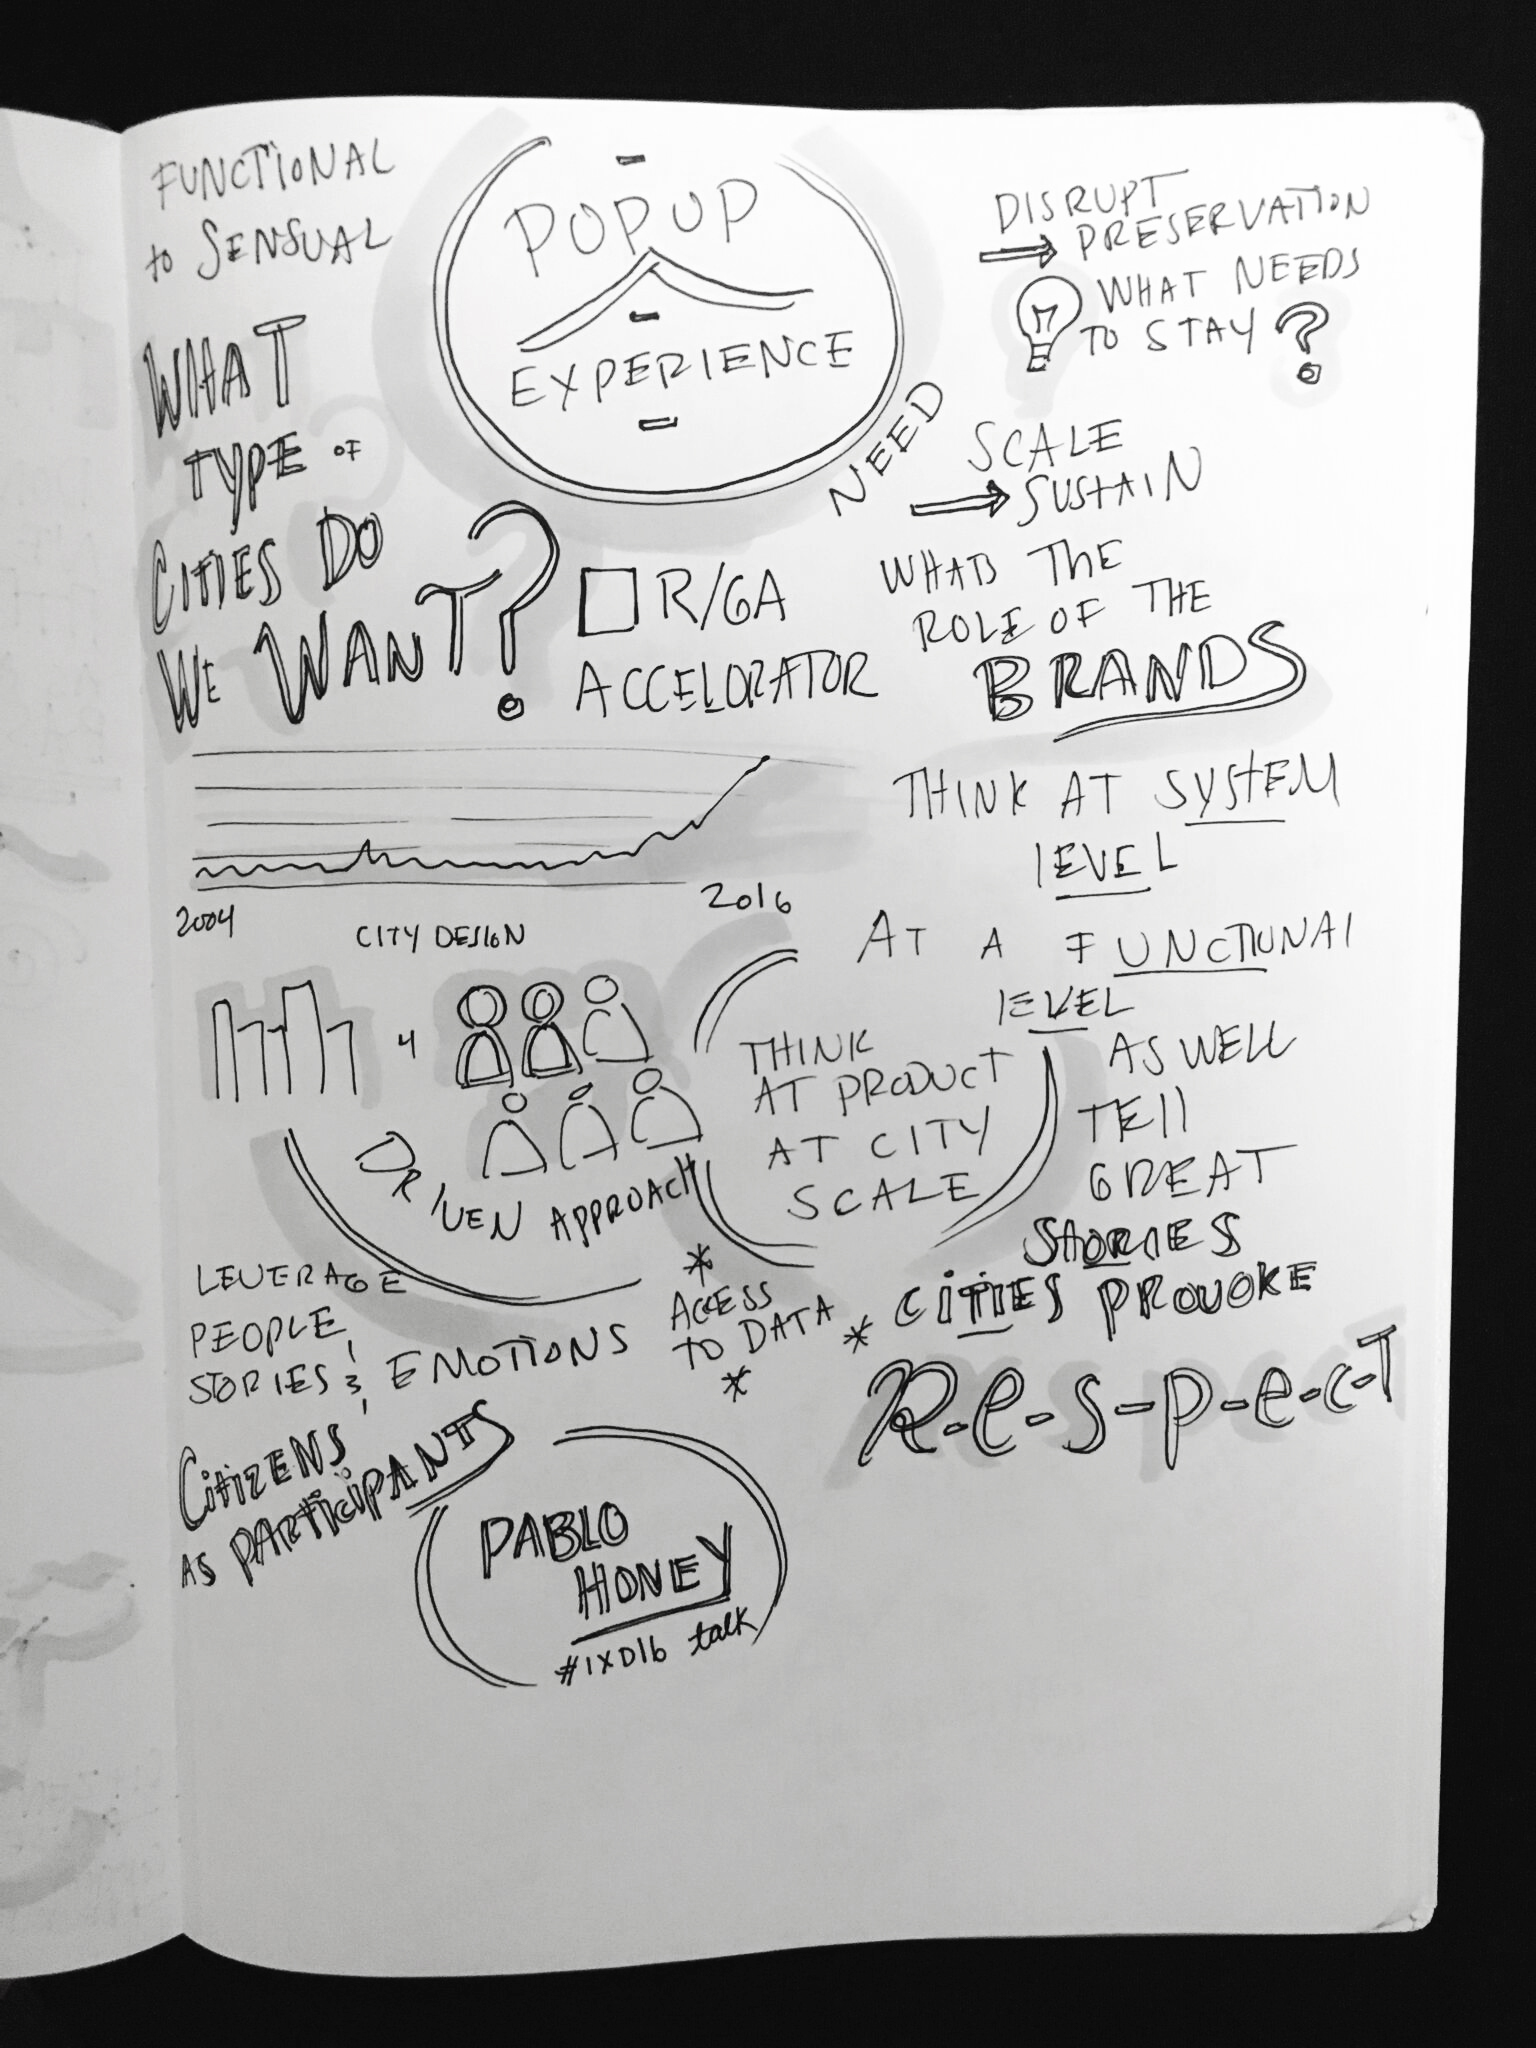 FUNCTIONAL
to SENSUAL
POPUP
EXPERIENCE
DISRUPT
PRESERVATION
WHAT NEEDS
TO STAY?
WHAT
TYPE OF
CITIES DO
WE WANT?
NEED
SCALE
SUSTAIN
R/GA
ACCELORATOR
WHATS THE
ROLE OF THE
BRANDS
THINK AT SYSTEM
LEVEL
2004
2016
CITY DESIGN
AT A FUNCTIONAL
LEVEL
AS WELL
TELL
GREAT
STORIES
THINK
AT PRODUCT
AT CITY
SCALE
DRIVEN APPROACH
LEVERAGE
PEOPLE,
STORIES & EMOTIONS
* ACCESS
TO DATA *
* CITIES PROVOKE
R-e-s-p-e-c-T
CitizENS
AS PARTiciPANTS
PABLO
HONEY
#IXD16 talk